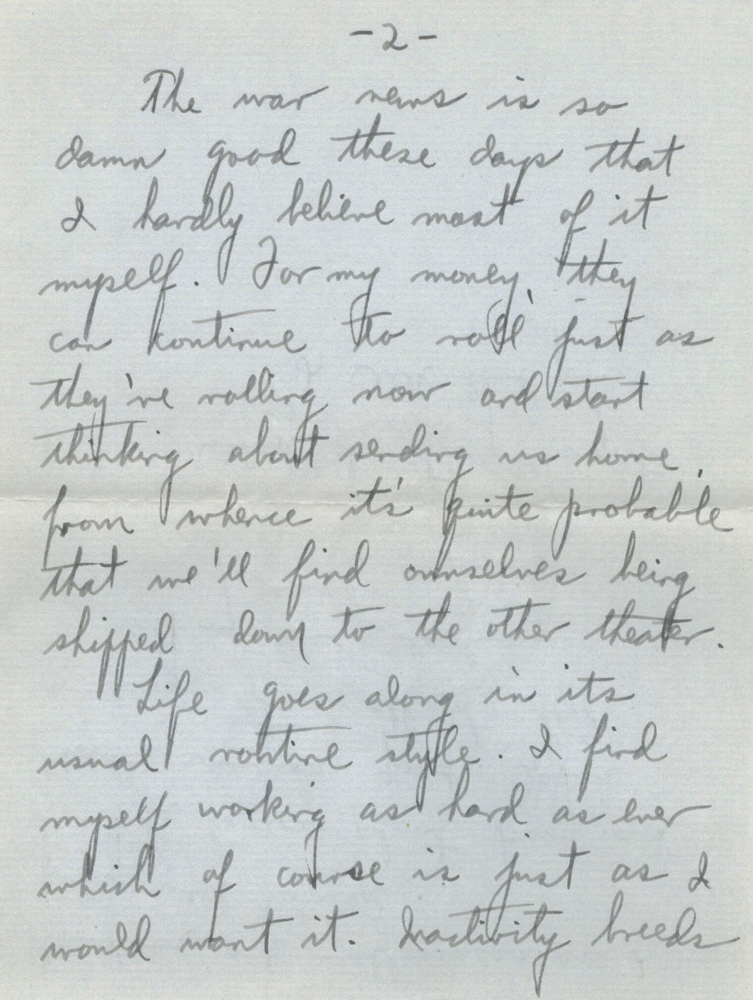 -2-
The war news is so
damn good these days that
I hardly believe most of it
myself. For my money, they
can continue to roll just as
they're rolling now and start
thinking about sending us home,
from whence it's quite probable
that we'll find ourselves being
shipped down to the other theater.
Life goes along in its
usual routine style. I find
myself working as hard as ever
which of course is just as I
would want it. Inactivity breeds